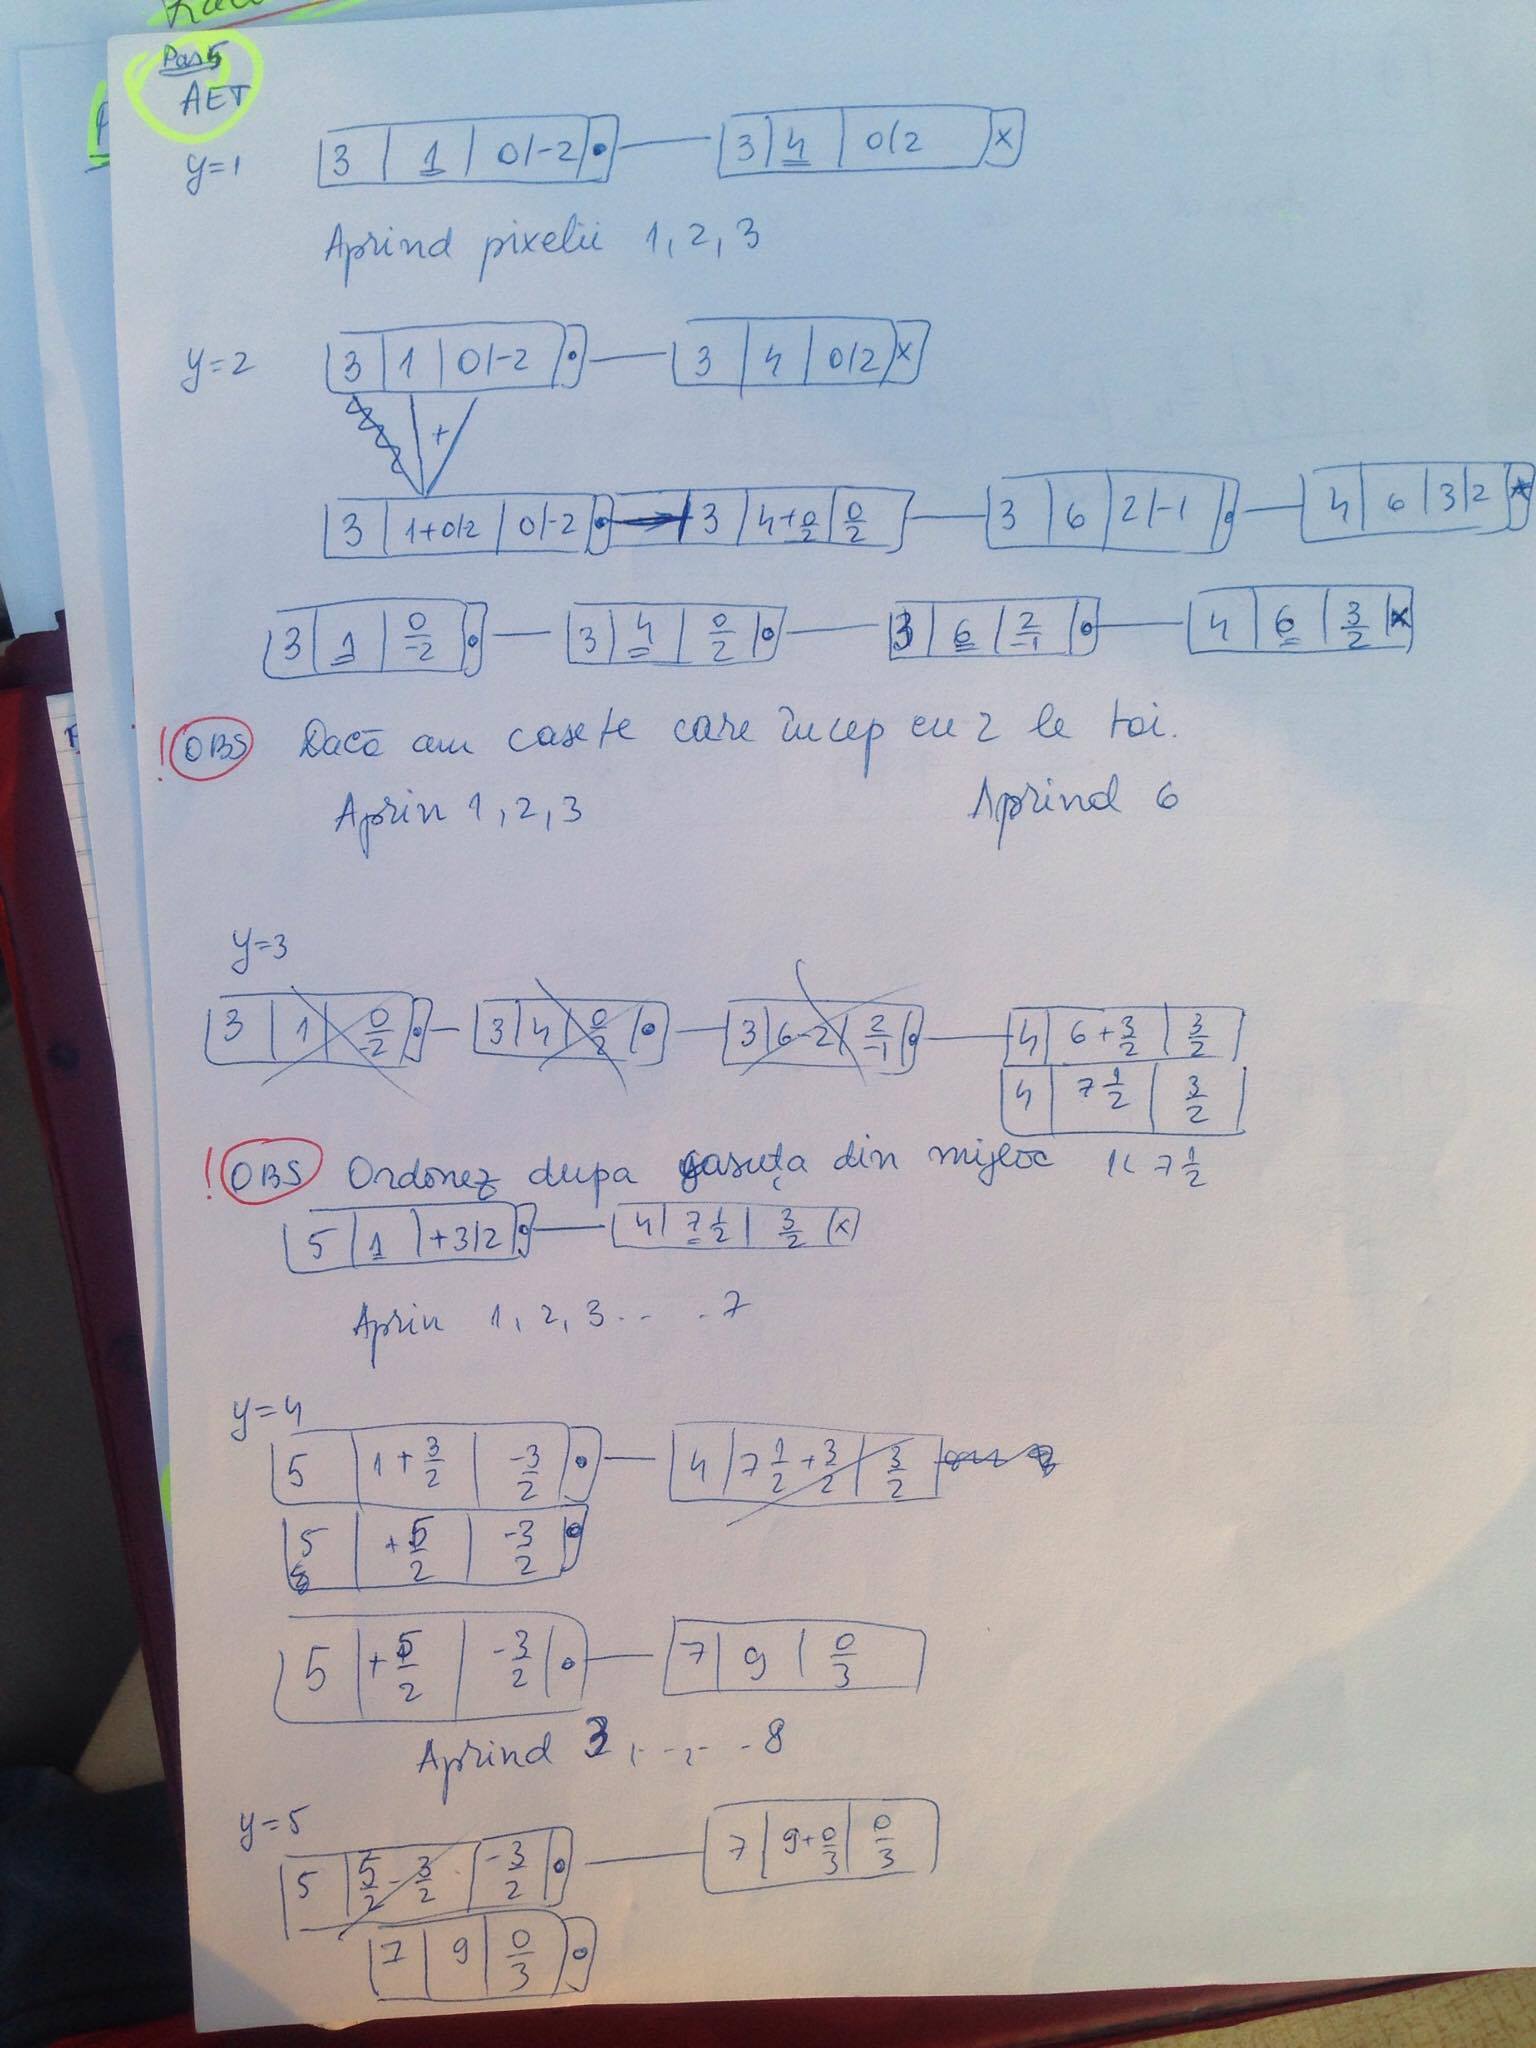 Pas5
AET
y=1 3 | 1 | 0/-2 | • — 3 | 4 | 0/2 | x
Aprind pixelii 1, 2, 3
y=2 3 | 1 | 0/-2 | • — 3 | 4 | 0/2 | x
+
3 | 1+0/2 | 0/-2 | • → 3 | 4+0/2 | 0/2 — 3 | 6 | 2/-1 | • — 4 | 6 | 3/2 | x
3 | 1 | 0/-2 | • — 3 | 4 | 0/2 | • — 3 | 6 | 2/-1 | • — 4 | 6 | 3/2 | x
! OBS Dacă am casete care încep cu 2 le tai.
Aprin 1, 2, 3 Aprind 6
y=3
3 | 1 | 0/2 | • — 3 | 4 | 0/2 | • — 3 | 6-2 | 2/-1 | • — 4 | 6+3/2 | 3/2
4 | 7 1/2 | 3/2
! OBS Ordonez dupa casuța din mijloc 1< 7 1/2
5 | 1 | +3/2 | • — 4 | 7 1/2 | 3/2 | x
Aprin 1, 2, 3 . . . . 7
y=4
5 | 1+3/2 | -3/2 | • — 4 | 7 1/2 + 3/2 | 3/2
5 | +5/2 | -3/2 | •
5 | +5/2 | -3/2 | • — 7 | 9 | 0/3
Aprind 3, - -, - - 8
y=5
5 | 5/2 - 3/2 | -3/2 | • — 7 | 9+0/3 | 0/3
7 | 9 | 0/3 | •